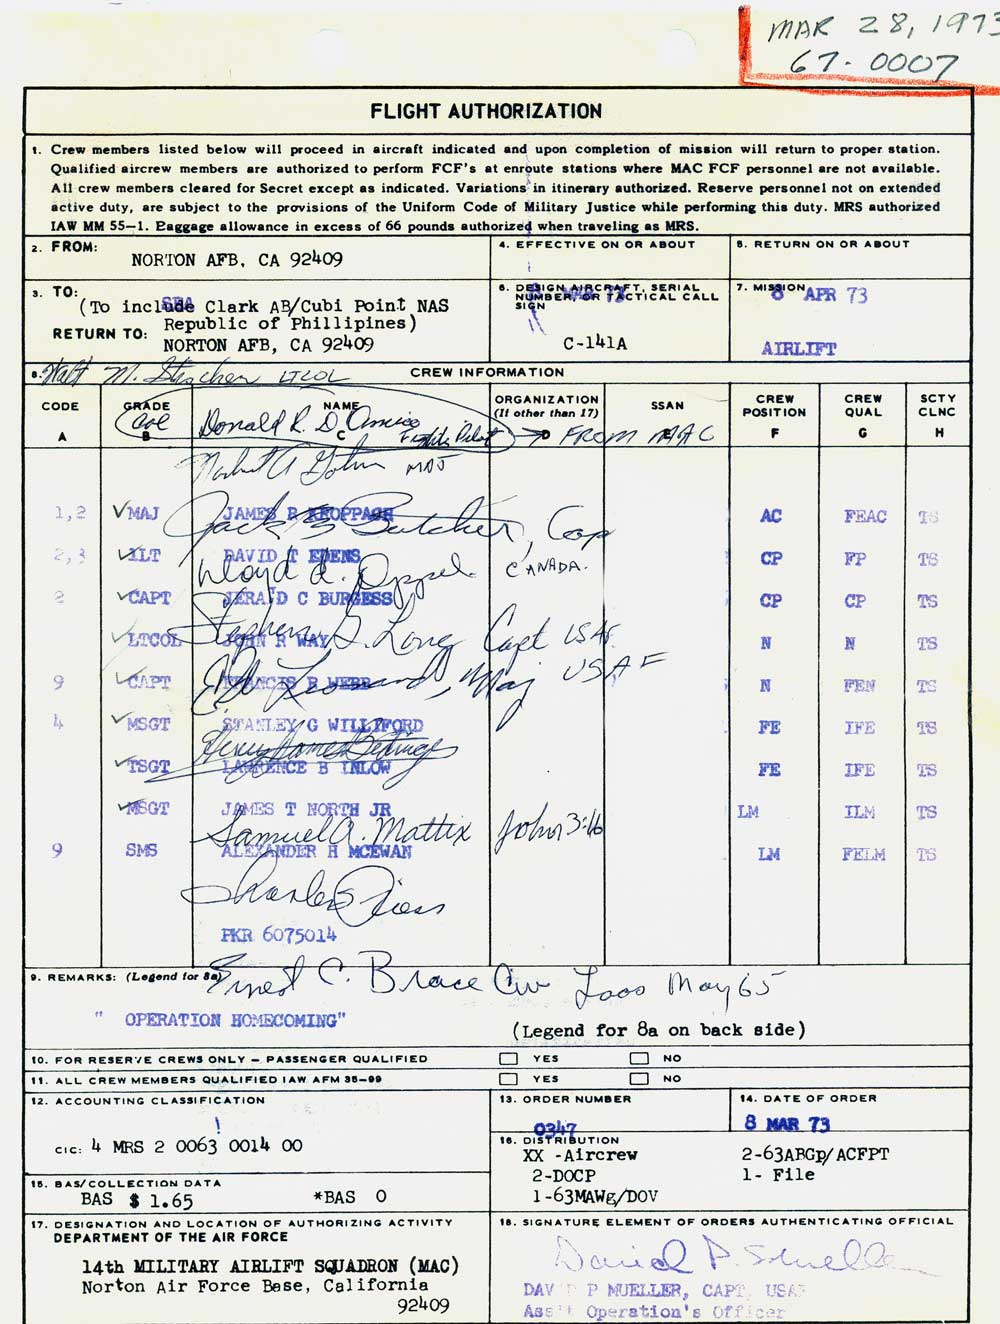 MAR 28, 1973
67-0007
FLIGHT AUTHORIZATION
1. Crew members listed below will proceed in aircraft indicated and upon completion of mission will return to proper station.
Qualified aircrew members are authorized to perform FCF's at enroute stations where MAC FCF personnel are not available.
All crew members cleared for Secret except as indicated. Variations in itinerary authorized. Reserve personnel not on extended
active duty, are subject to the provisions of the Uniform Code of Military Justice while performing this duty. MRS authorized
IAW MM 55-1. Baggage allowance in excess of 66 pounds authorized when traveling as MRS.
2. FROM:
NORTON AFB, CA 92409
4. EFFECTIVE ON OR ABOUT
5. RETURN ON OR ABOUT
3. TO:
(To include Clark AB/Cubi Point NAS
Republic of Phillipines)
RETURN TO:
NORTON AFB, CA 92409
6. DESIGN AIRCRAFT, SERIAL
NUMBER, OR TACTICAL CALL
SIGN
C-141A
7. MISSION
8 APR 73
AIRLIFT
8. CREW INFORMATION
LTCOL
CODE
A
GRADE
B
NAME
C
ORGANIZATION
(If other than 17)
D
SSAN
CREW
POSITION
F
CREW
QUAL
G
SCTY
CLNC
H
Donald R. D
FROM MAC
MAJ
1,2 MAJ JAMES R KROPPACH AC FEAC TS
Jack Butcher, Cap
2,3 1LT DAVID T EDENS CP FP TS
Lloyd Oppel CANADA.
2 CAPT JERALD C BURGESS CP CP TS
Stephen G. Long Capt USAF
LTCOL JOHN R WAY N N TS
9 CAPT FRANCIS R WEBB N FEN TS
Leonard, Maj USAF
4 MSGT STANLEY G WILLIFORD FE IFE TS
Henry James Bedinger
TSGT LAWRENCE B INLOW FE IFE TS
MSGT JAMES T NORTH JR LM ILM TS
Samuel A. Mattix John 3:16
9 SMS ALEXANDER H MCEWAN LM FELM TS
Charles Riess
PKR 6075014
9. REMARKS: (Legend for 8a)
Ernest C. Brace Civ Laos May 65
" OPERATION HOMECOMING"
(Legend for 8a on back side)
10. FOR RESERVE CREWS ONLY - PASSENGER QUALIFIED YES NO
11. ALL CREW MEMBERS QUALIFIED IAW AFM 35-99 YES NO
12. ACCOUNTING CLASSIFICATION
CIC: 4 MRS 2 0063 0014 00
13. ORDER NUMBER
0347
14. DATE OF ORDER
8 MAR 73
15. BAS/COLLECTION DATA
BAS $ 1.65 *BAS 0
16. DISTRIBUTION
XX -Aircrew 2-63ABGp/ACFPT
2-DOCP 1- File
1-63MAWg/DOV
17. DESIGNATION AND LOCATION OF AUTHORIZING ACTIVITY
DEPARTMENT OF THE AIR FORCE
14th MILITARY AIRLIFT SQUADRON (MAC)
Norton Air Force Base, California
92409
18. SIGNATURE ELEMENT OF ORDERS AUTHENTICATING OFFICIAL
David P. Mueller
DAV P MUELLER, CAPT, USAF
Ass't Operation's Officer